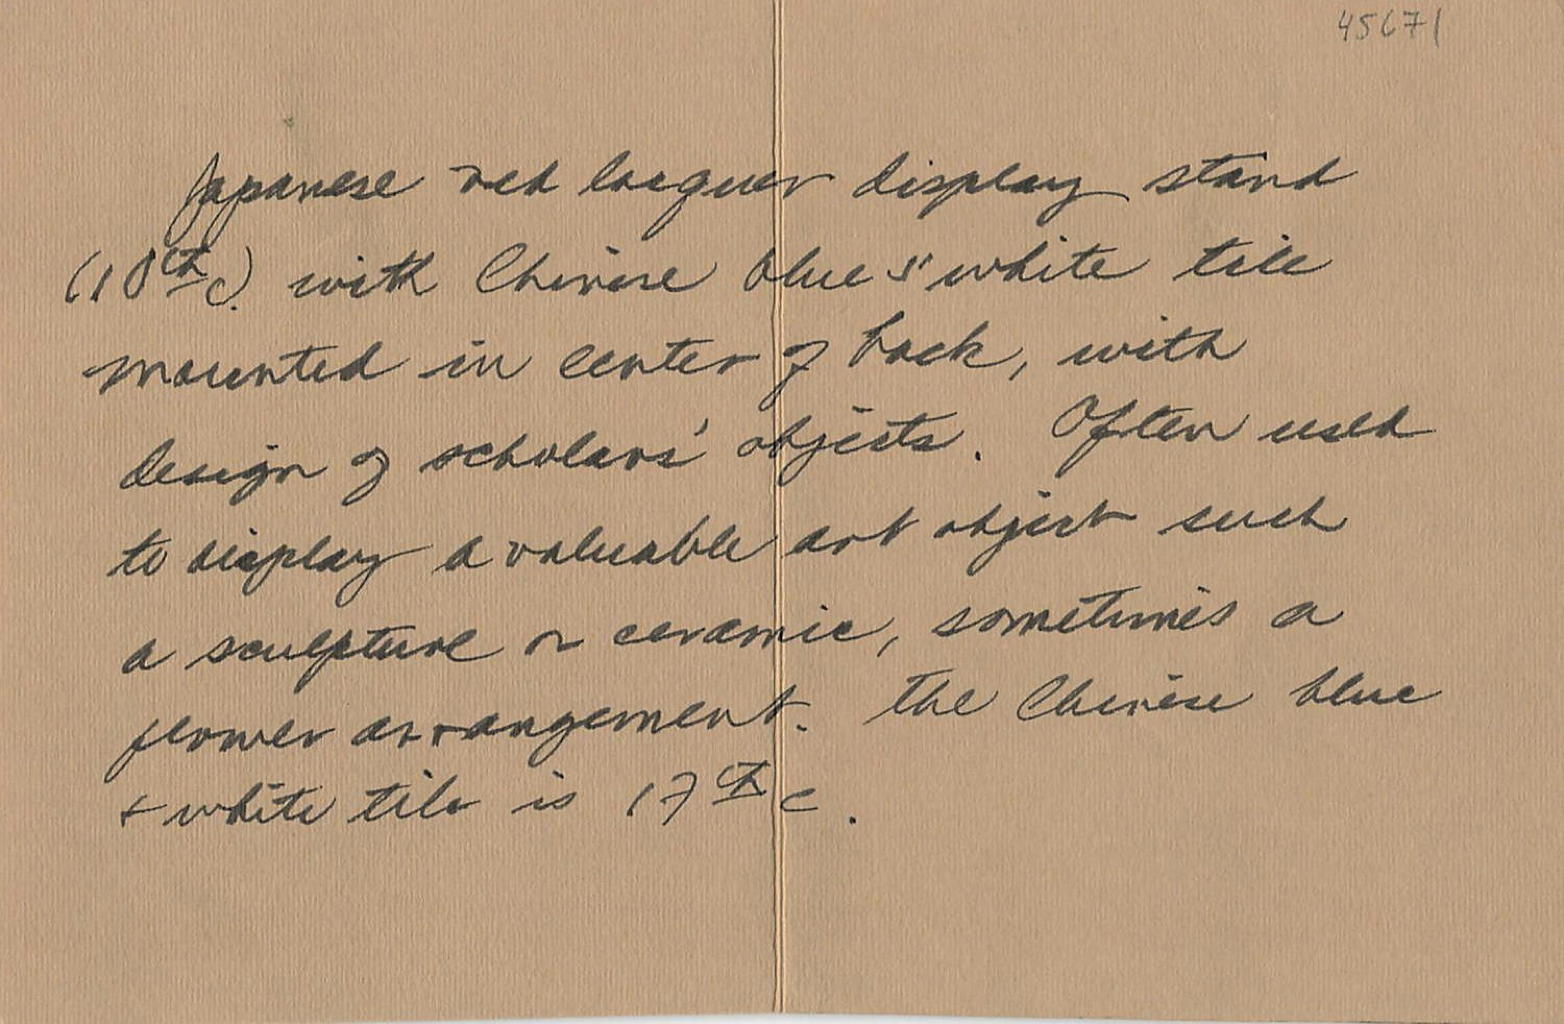 45671
Japanese red lacquer display stand
(18th c.) with Chinese blue & white tile
mounted in center of back, with
design of scholars' objects. Often used
to display a valuable art object such
a sculpture or ceramic, sometimes a
flower arrangement. The Chinese blue
+ white tile is 17th c.